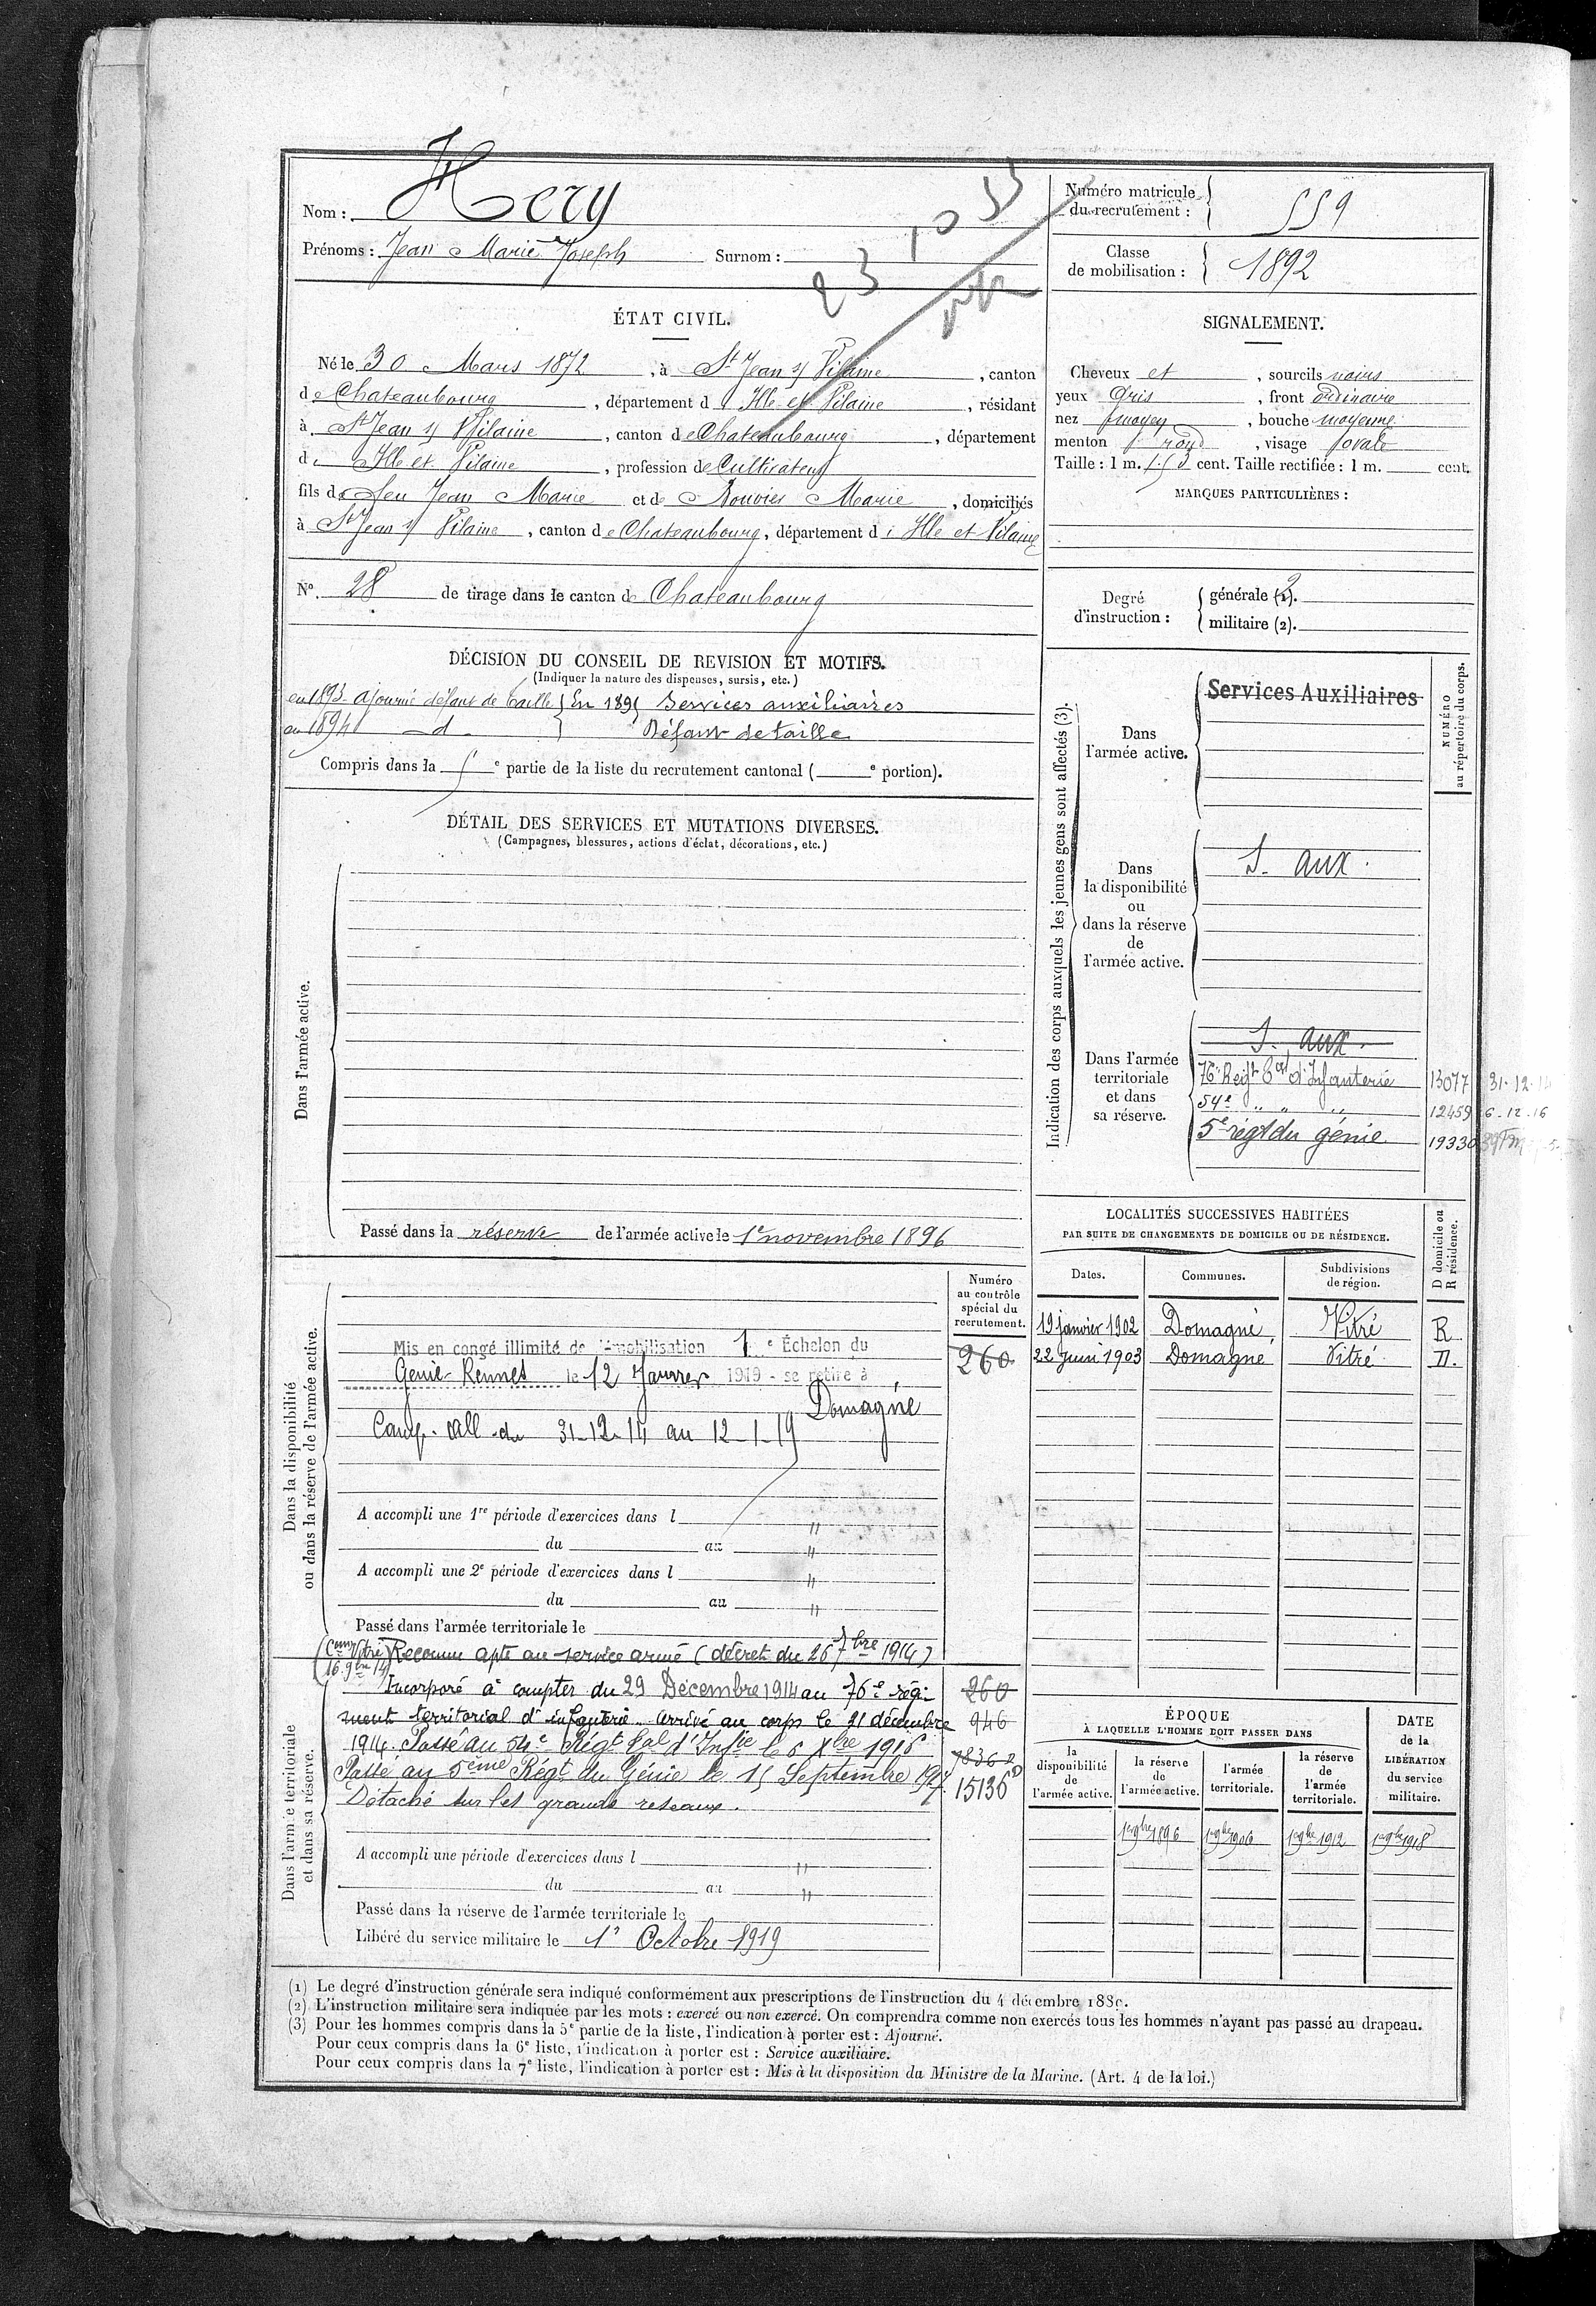 Nom : Hery
Prénoms : Jean Marie Joseph Surnom :
Numéro matricule du recrutement : 559
Classe de mobilisation : 1892
ÉTAT CIVIL.
Né le 30 Mars 1872, à St Jean s/ Vilaine, canton
de Chateaubourg, département d'Ille et Vilaine, résidant
à St Jean s/ Vilaine, canton de Chateaubourg, département
d'Ille et Vilaine, profession de Cultivateur
fils de feu Jean Marie et de Bouvier Marie, domiciliés
à St Jean s/ Vilaine, canton de Chateaubourg, département d'Ille et Vilaine
N° 28 de tirage dans le canton de Chateaubourg
SIGNALEMENT.
Cheveux et, sourcils noirs
yeux gris, front ordinaire
nez moyen, bouche moyenne
menton rond, visage ovale
Taille : 1 m. 53 cent. Taille rectifiée : 1 m. cent.
MARQUES PARTICULIÈRES :
Degré d'instruction : générale (1). 2
militaire (2).
DÉCISION DU CONSEIL DE REVISION ET MOTIFS.
(Indiquer la nature des dispenses, sursis, etc.)
en 1893 ajourné défaut de taille } En 1895 Services auxiliaires
en 1894 d° } Défaut de taille
Compris dans la e partie de la liste du recrutement cantonal ( e portion).
DÉTAIL DES SERVICES ET MUTATIONS DIVERSES.
(Campagnes, blessures, actions d'éclat, décorations, etc.)
Dans l'armée active.
Passé dans la réserve de l'armée active le 1er novembre 1896
Indication des corps auxquels les jeunes gens sont affectés (3).
NUMÉRO au répertoire du corps.
Dans l'armée active.
Services Auxiliaires
Dans la disponibilité ou dans la réserve de l'armée active.
S. aux.
Dans l'armée territoriale et dans sa réserve.
S. aux.
76e Regt tal d'Infanterie 13077 31-12-14
54e " " " 12459 6-12-16
5e régt du génie 19330
LOCALITÉS SUCCESSIVES HABITÉES
PAR SUITE DE CHANGEMENTS DE DOMICILE OU DE RÉSIDENCE.
Dates. Communes. Subdivisions de région. D domicile ou R résidence.
19 janvier 1902 Domagné Vitré R
22 Juin 1903 Domagné Vitré D.
Dans la disponibilité ou dans la réserve de l'armée active.
Numéro au contrôle spécial du recrutement.
260
Mis en congé illimité de démobilisation 1e Échelon du
Génie-Rennes le 12 Janvier 1919 - se retire à
Domagné
Camp. All. du 31-12-14 au 12-1-19
A accompli une 1re période d'exercices dans l "
du au "
A accompli une 2e période d'exercices dans l "
du au "
Passé dans l'armée territoriale le
(Con Vitré 16 9bre 14) Reconnu apte au service armé (décret du 26 7bre 1914)
Dans l'armée territoriale et dans sa réserve.
Incorporé à compter du 29 Décembre 1914 au 76e régi- 260
ment territorial d'infanterie. Arrivé au corps le 31 décembre 946
1914. Passé au 54e Régt tal d'Inftie le 6 Xbre 1916
Passé au 5eme Régt du Génie le 15 Septembre 1917. 15136
Détaché sur les grands réseaux.
A accompli une période d'exercices dans l "
du au "
Passé dans la réserve de l'armée territoriale le
Libéré du service militaire le 1er Octobre 1919
ÉPOQUE
À LAQUELLE L'HOMME DOIT PASSER DANS
DATE DE LA LIBÉRATION du service militaire.
la disponibilité de l'armée active. la réserve de l'armée active. l'armée territoriale. la réserve de l'armée territoriale.
1er 9bre 1896 1er 9bre 1906 1er 9bre 1912 1er 9bre 1918
(1) Le degré d'instruction générale sera indiqué conformément aux prescriptions de l'instruction du 4 décembre 1889.
(2) L'instruction militaire sera indiquée par les mots : exercé ou non exercé. On comprendra comme non exercés tous les hommes n'ayant pas passé au drapeau.
(3) Pour les hommes compris dans la 5e partie de la liste, l'indication à porter est : Ajourné.
Pour ceux compris dans la 6e liste, l'indication à porter est : Service auxiliaire.
Pour ceux compris dans la 7e liste, l'indication à porter est : Mis à la disposition du Ministre de la Marine. (Art. 4 de la loi.)